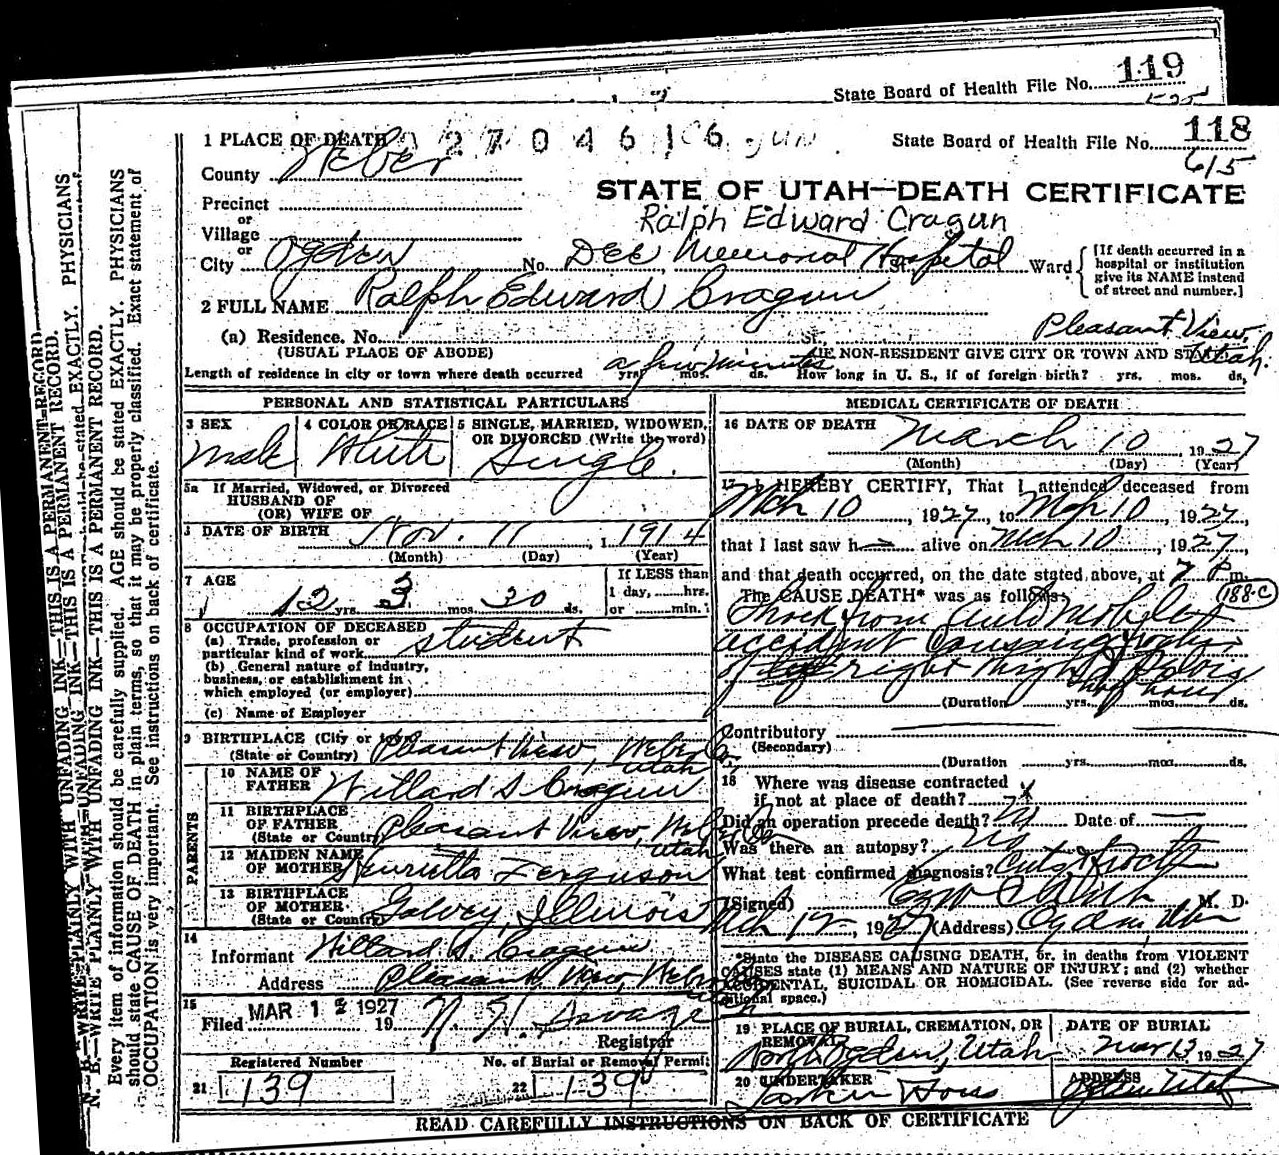 State Board of Health File No. 119
State Board of Health File No. 118
615
1 PLACE OF DEATH
027046 106 JUN
County Weber
STATE OF UTAH—DEATH CERTIFICATE
Precinct
Ralph Edward Cragun
or
Village
or
City Ogden No. Dee Memorial Hospital St. Ward
[If death occurred in a
hospital or institution
give its NAME instead
of street and number.]
2 FULL NAME Ralph Edward Cragun
(a) Residence. No. St. Pleasant View, Utah.
(USUAL PLACE OF ABODE) (IF NON-RESIDENT GIVE CITY OR TOWN AND STATE
Length of residence in city or town where death occurred a few minutes yrs. mos. ds. How long in U. S., if of foreign birth? yrs. mos. ds,
PERSONAL AND STATISTICAL PARTICULARS
3 SEX
Male
4 COLOR OR RACE
White
5 SINGLE, MARRIED, WIDOWED,
OR DIVORCED (Write the word)
Single.
5a If Married, Widowed, or Divorced
HUSBAND OF
(OR) WIFE OF
DATE OF BIRTH Nov. 11, 1914
(Month) (Day) (Year)
7 AGE
12 yrs. 3 mos. 30 ds.
If LESS than
1 day, hrs.
or min.
8 OCCUPATION OF DECEASED
(a) Trade, profession or
particular kind of work student
(b) General nature of industry,
business, or establishment in
which employed (or employer)
(c) Name of Employer
9 BIRTHPLACE (City or town
(State or Country) Pleasant View, Weber Co
Utah
PARENTS
10 NAME OF
FATHER Willard S Cragun
11 BIRTHPLACE
OF FATHER
(State or Country) Pleasant View, Weber Co
Utah
12 MAIDEN NAME
OF MOTHER Henrietta Ferguson
13 BIRTHPLACE
OF MOTHER
(State or Country) Illinois
14
Informant Willard S. Cragun
Address Pleasant View, Weber
15
Filed MAR 12 1927 19
Registrar
Registered Number
21 139
No. of Burial or Removal Permit
22 139
MEDICAL CERTIFICATE OF DEATH
16 DATE OF DEATH
March 10, 1927
(Month) (Day) (Year)
17 I HEREBY CERTIFY, That I attended deceased from
Mch 10, 1927, to Mch 10, 1927,
that I last saw h alive on Mch 10, 1927,
and that death occurred, on the date stated above, at 7 P m.
The CAUSE DEATH* was as follows:
188-C
Shock from Automobile
accident causing
of right thigh & Pelvis
half hour
(Duration yrs. mos. ds.
Contributory
(Secondary)
(Duration yrs. mos. ds.
18 Where was disease contracted
if not at place of death? x
Did an operation precede death? No Date of —
Was there an autopsy? No
What test confirmed diagnosis?
(Signed) M. D.
Mch 12, 1927 (Address) Ogden, Utah
*State the DISEASE CAUSING DEATH, or, in deaths from VIOLENT
CAUSES state (1) MEANS AND NATURE OF INJURY; and (2) whether
ACCIDENTAL, SUICIDAL OR HOMICIDAL. (See reverse side for ad-
ditional space.)
19 PLACE OF BURIAL, CREMATION, OR
REMOVAL
North Ogden, Utah
DATE OF BURIAL
Mar 13 1927
20 UNDERTAKER
Larkin Sons
ADDRESS
Ogden Utah
READ CAREFULLY INSTRUCTIONS ON BACK OF CERTIFICATE
N. B.—WRITE PLAINLY WITH UNFADING INK—THIS IS A PERMANENT RECORD.
Every item of information should be carefully supplied. AGE should be stated EXACTLY. PHYSICIANS
should state CAUSE OF DEATH in plain terms, so that it may be properly classified. Exact statement of
OCCUPATION is very important. See instructions on back of certificate.